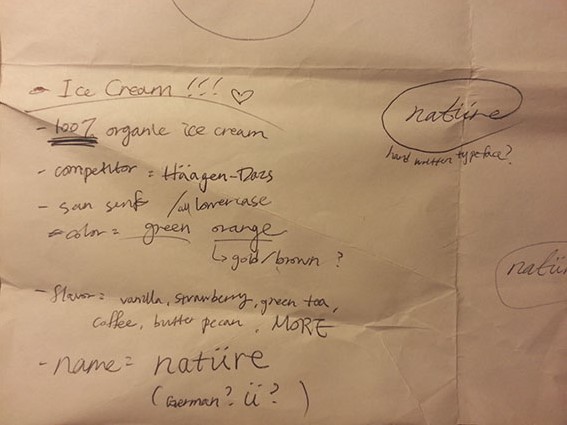 - Ice Cream !!! ♡
- 100% organic ice cream
- competitor = Häägen-Dazs
- san serif /all lowercase
- color = green orange
↳ gold/brown ?
- flavor = vanilla, strawberry, green tea,
coffee, butter pecan, MORE
- name = natüre
(German? ü ?)
natüre
hand written typeface?
natür